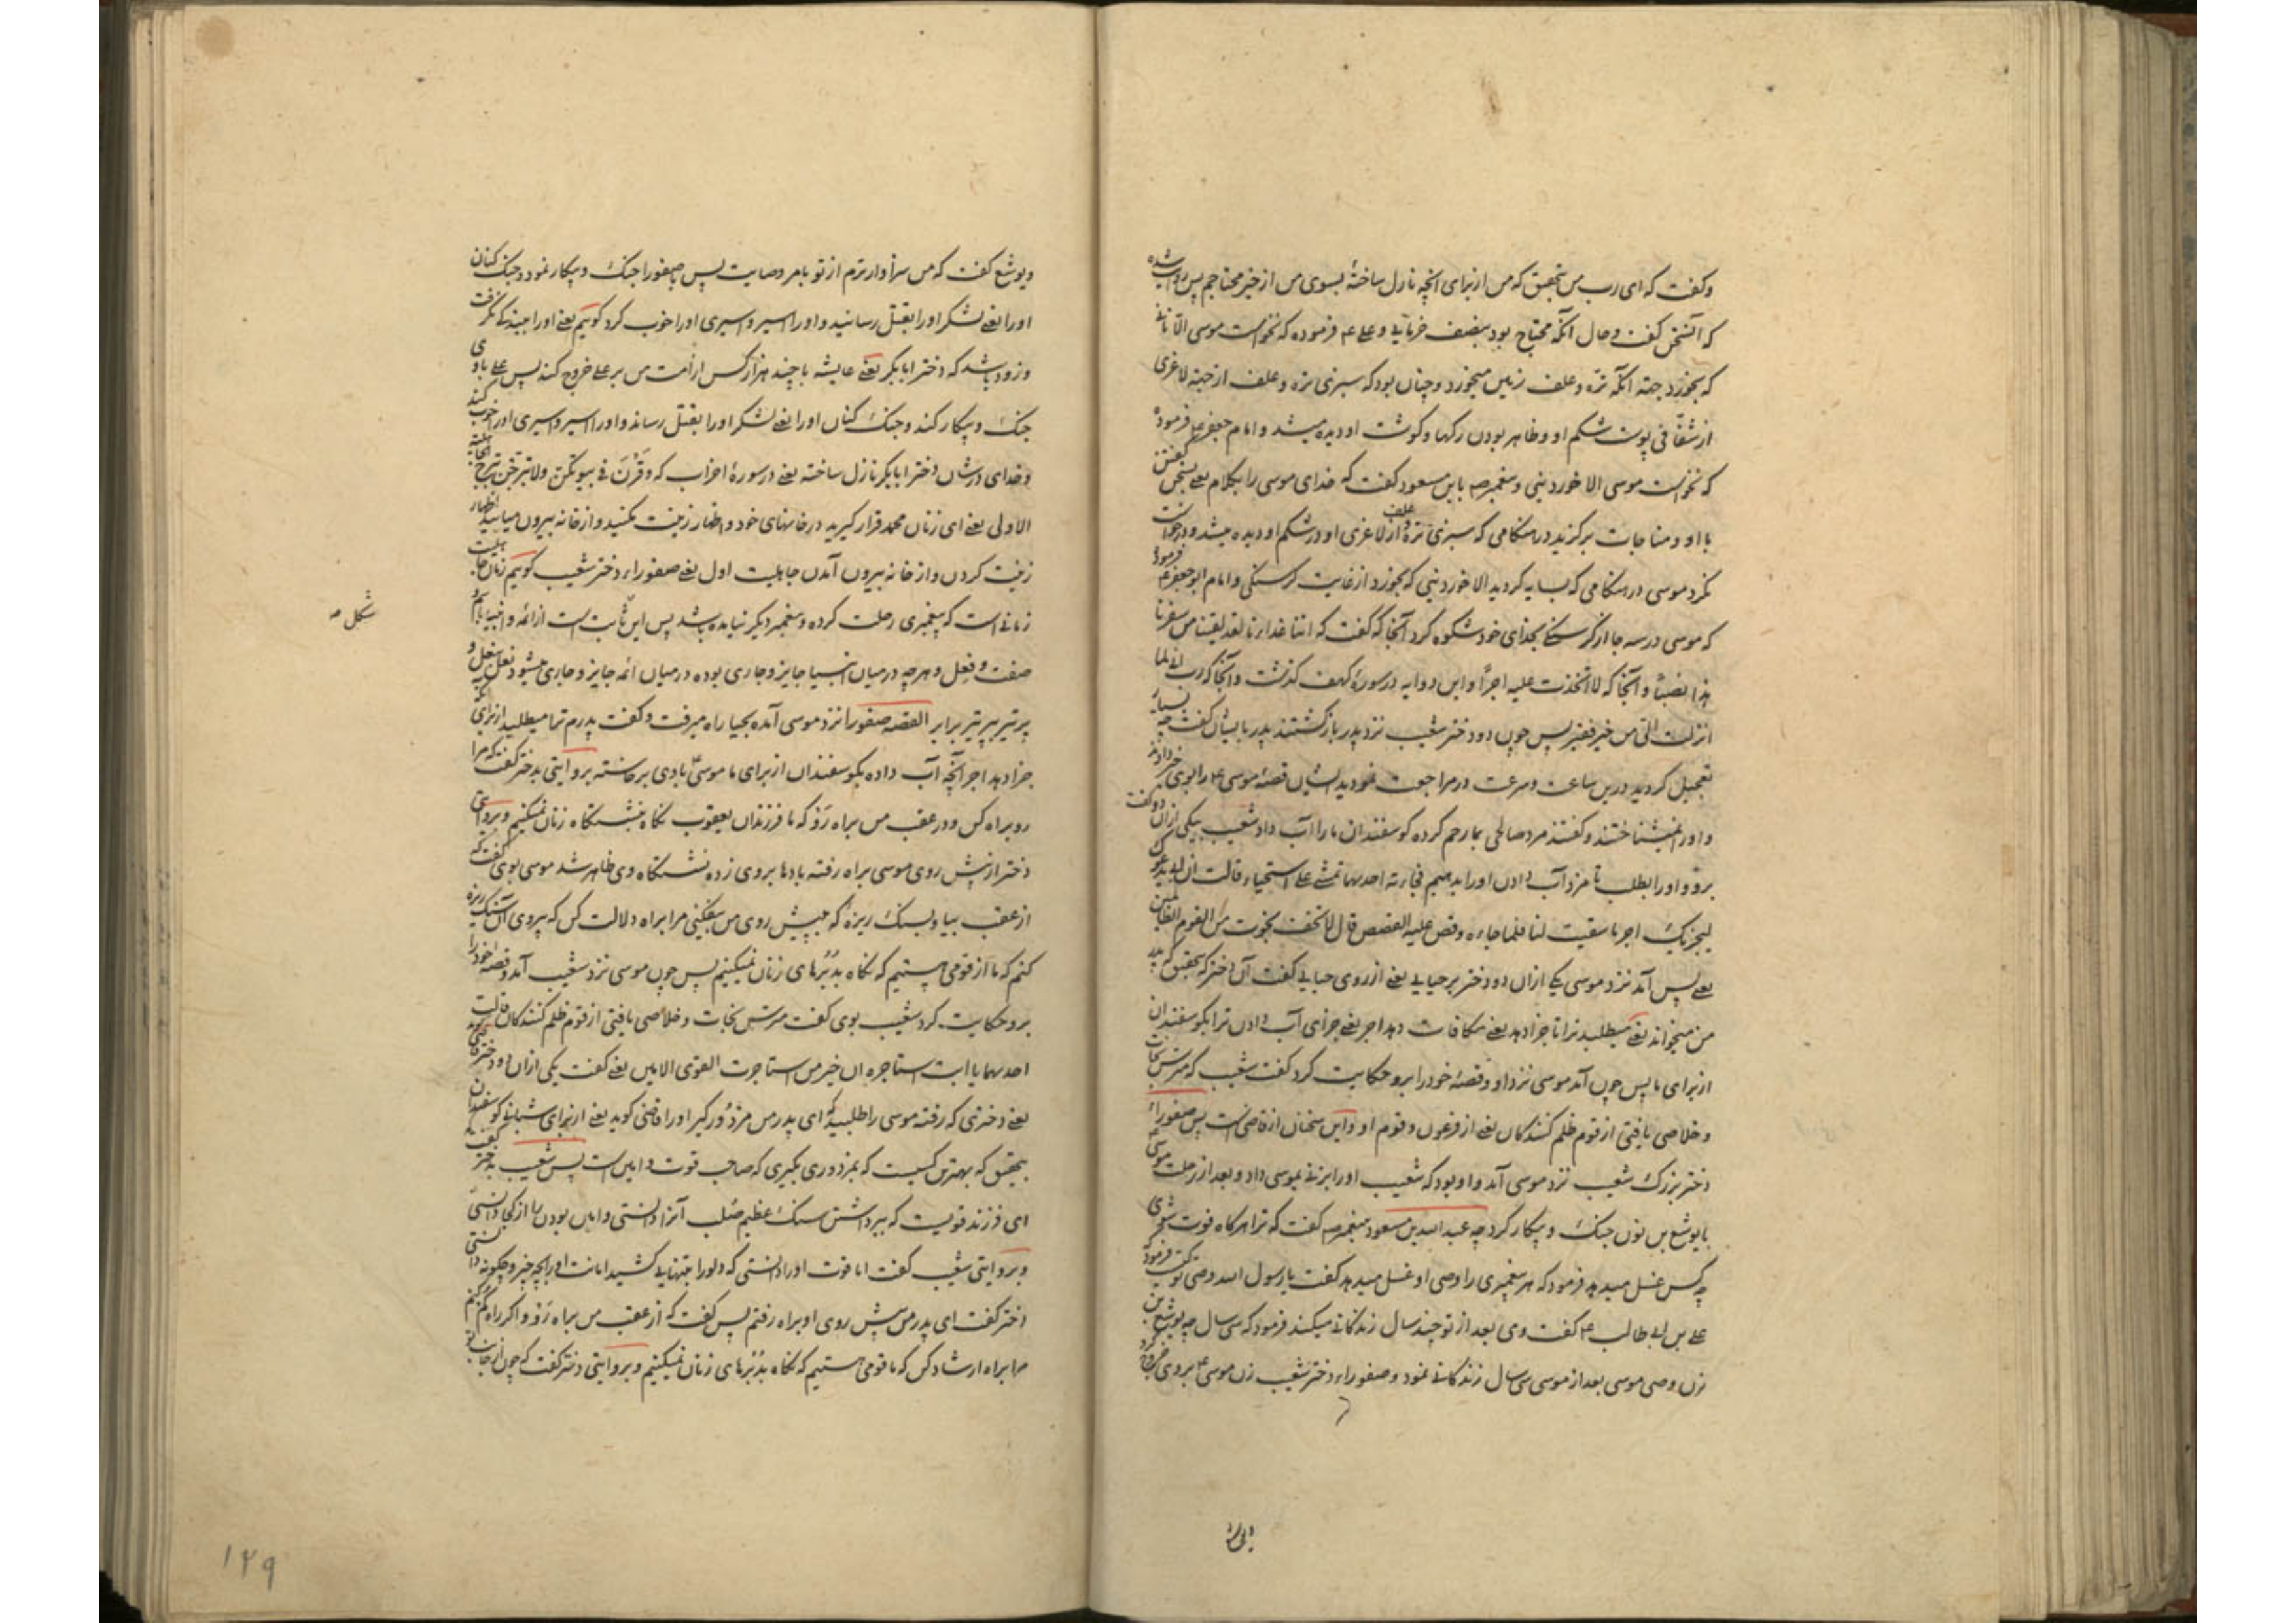 وکفت که ای رب من بتحقیق که من از برای انچه نازل ساختهٔ بسوی من از خیر محتاجم پس روایت شده
که این سخن کفت و حال آنکه محتاج بود بنصف خرمایی و علی ع فرموده که نخواست موسی الا نانی
که بخورد جهته آنکه تره و علف زمین میخورد و چنان بود که سبزی تره و علف از جهته لاغری
از شفافی پوست شکم او و ظاهر بودن رکها و کوشت او دیده میشد و امام جعفر ع فرموده
که نخواست موسی الا خوردینی و پیغمبر صم بابن مسعود کفت که خدای موسی را بکلام یعنی بسخن کفتن
با او و مناجات برکزید در هنکامی که سبزی تره و علف از لاغری او در شکم او دیده میشد و درخواست
نکرد موسی در هنکامی که بسایه کردید الا خوردینی که بخورد از غایت کرسنکی و امام ابو جعفر ع فرمود
که موسی در سه جا از کرسنکی بخدای خود شکوه کرد آنجا که کفت که اتنا غداءنا لقد لقینا من سفرنا
هذا نصبا و آنجا که لاتخذت علیه اجرا و این دو ایه در سورهٔ کهف کذشت و آنجا که رب انی لما
انزلت الی من خیر فقیر پس چون دو دختر شعیب نزد پدر بازکشتند پدر بایشان کفت چه بسیار
تعجیل کردید درین ساعت و سرعت در مراجعت نمودید ایشان قصهٔ موسی ع را بوی خبر دادند
و اورا نمیشناختند و کفتند مرد صالحی بما رحم کرده کوسفندان ما را آب داد شعیب بیکی ازان دو کفت
برو و اورا بطلب تا مزد آب دادن اورا بدهیم فجاءته احدیهما تمشی علی استحیاء قالت ان ابی یدعوک
لیجزیک اجر ما سقیت لنا فلما جاءه و قص علیه القصص قال لا تخف نجوت من القوم الظالمین
یعنی پس آمد نزد موسی یکی ازان دو دختر بر حیایی یعنی از روی حیایی کفت آن دختر که بتحقیق که پدر
من میخواند یعنی میطلبد ترا تا جزا دهد یعنی مکافات دهد اجر یعنی جزای آب دادن ترا بکوسفندان
از برای ما پس چون آمد موسی نزد او و قصهٔ خود را برو حکایت کرد کفت شعیب که مترس نجات
و خلاصی یافتی از قوم ظلم کنندکان یعنی از فرعون و قوم او و این سخنان از قاضی است پس صفوراء
دختر بزرک شعیب نزد موسی آمد و او بود که شعیب اورا بزنی بموسی داد و بعد از رحلت موسی ع
با یوشع بن نون جنک و پیکار کرد چه عبد الله بن مسعود بپیغمبر صم کفت که ترا هرکاه فوت شوی
چه کس غسل میدهد فرمود که هر پیغمبری را وصی او غسل میدهد کفت یا رسول الله وصی تو کیست فرمود
علی بن ابی طالب ع کفت وی بعد از تو چند سال زندکانی میکند فرمود که سی سال چه یوشع بن
نون وصی موسی بعد از موسی سی سال زندکانی نمود و صفوراء دختر شعیب زن موسی ع بر وی خروج کرد
ویوشع کفت که من سزاوارترم از تو بامر وصایت پس با صفورا جنک و پیکار نمود و جنک کنان
اورا یعنی لشکر اورا بقتل رسانید و اورا اسیر و اسیری اورا خوب کرد کوئیم یعنی اورا ببندکی نکرفت
و زود باشد که دختر ابابکر یعنی عایشه با چند هزار کس از امت من بر علی خروج کند پس علی با وی
جنک و پیکار کند و جنک کنان اورا یعنی لشکر اورا بقتل رساند و اورا اسیر و اسیری اورا خوب کند
و خدای در شان دختر ابابکر نازل ساخته یعنی در سورهٔ احزاب که و قرن فی بیوتکن ولا تبرجن تبرج الجاهلیة
الاولی یعنی ای زنان محمد قرار کیرید در خانهای خود و اظهار زینت مکنید و از خانه بیرون میایید اظهار
زینت کردن و از خانه بیرون آمدن جاهلیت اول یعنی صفوراء دختر شعیب کوئیم زمان جاهلیت
زمانی است که پیغمبری رحلت کرده و پیغمبر دیکر نیامده باشد پس این ثابت است از ائمه و انبیا باهم
شکل ص
صفت و فعل و هرچه در میان انبیا جایز و جاری بوده در میان ائمه جایز و جاری میشود نعل بنعل و
پر تیر بپر تیر برابر القصه صفورا نزد موسی آمده بحیا راه میرفت و کفت پدرم ترا میطلبد از برای آنکه
جزا دهد اجر آنچه آب داده بکوسفندان از برای ما موسی ع با وی برخاسته بروایتی بدختر کفت که مرا
روبراه کن و در عقب من براه رو که ما فرزندان یعقوب نکاه بنشستکاه زنان نمیکنیم و بروایتی
دختر از پیش روی موسی براه رفته بادها بر وی زده نشستکاه وی ظاهر شد موسی بوی کفت که
از عقب بیا و بسنک ریزهٔ که پیش روی من بیفکنی مرا براه دلالت کن که پیروی آن سنک ریزه
کنم که ما از قومی هستیم که نکاه بدبرهای زنان نمیکنیم پس چون موسی نزد شعیب آمد و قصهٔ خود را
برو حکایت کرد شعیب بوی کفت مترس نجات و خلاصی یافتی از قوم ظلم کنندکان قالت
احدیهما یا ابت استاجره ان خیر من استاجرت القوی الامین یعنی کفت یکی ازان دو دختر
یعنی دختری که رفته موسی را طلبیده که ای پدر من مزدور کیر اورا قاضی کوید یعنی از برای شبانی کوسفندان
بتحقیق که بهترین کسیست که بمزدوری بکیری که صاحب قوت و امین است پس شعیب بدختر کفت
ای فرزند قویست که ببرداشتن سنک عظیم صلب آنرا دانستی و امین بودن را از کجا دانستی
و بروایتی شعیب کفت اما قوت اورا دانستی که دلو را بتنهایی کشید امانت او را بچه چیز و چکونه دانستی
دختر کفت ای پدر من پیش روی او براه رفتم پس کفت که از عقب من براه رو و اکر راه کم کنم
مرا براه ارشاد کن که ما قومی هستیم که نکاه بدبرهای زنان نمیکنیم و بروایتی دختر کفت که چون از جانب تو
۱۴۹